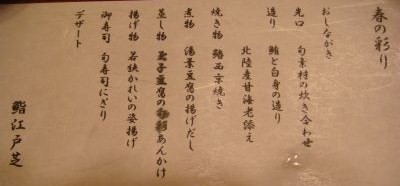 春の彩り
おしながき
先口 旬素材の炊き合わせ
造り 鮪と白身の造り
北陸産甘海老添え
焼き物 鰆西京焼き
煮物 湯葉豆腐の揚げだし
蒸し物 玉子豆腐のあんかけ
揚げ物 若狭かれいの姿揚げ
御寿司 旬寿司にぎり
デザート
鮨江戸芝